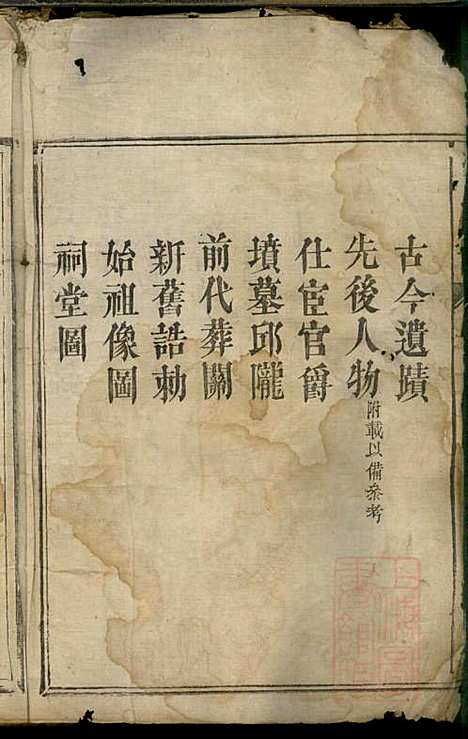 古今遺蹟
先後人物附載以備參考
仕宦官爵
墳墓邱隴
前代葬關
新舊誥勅
始祖像圖
祠堂圖